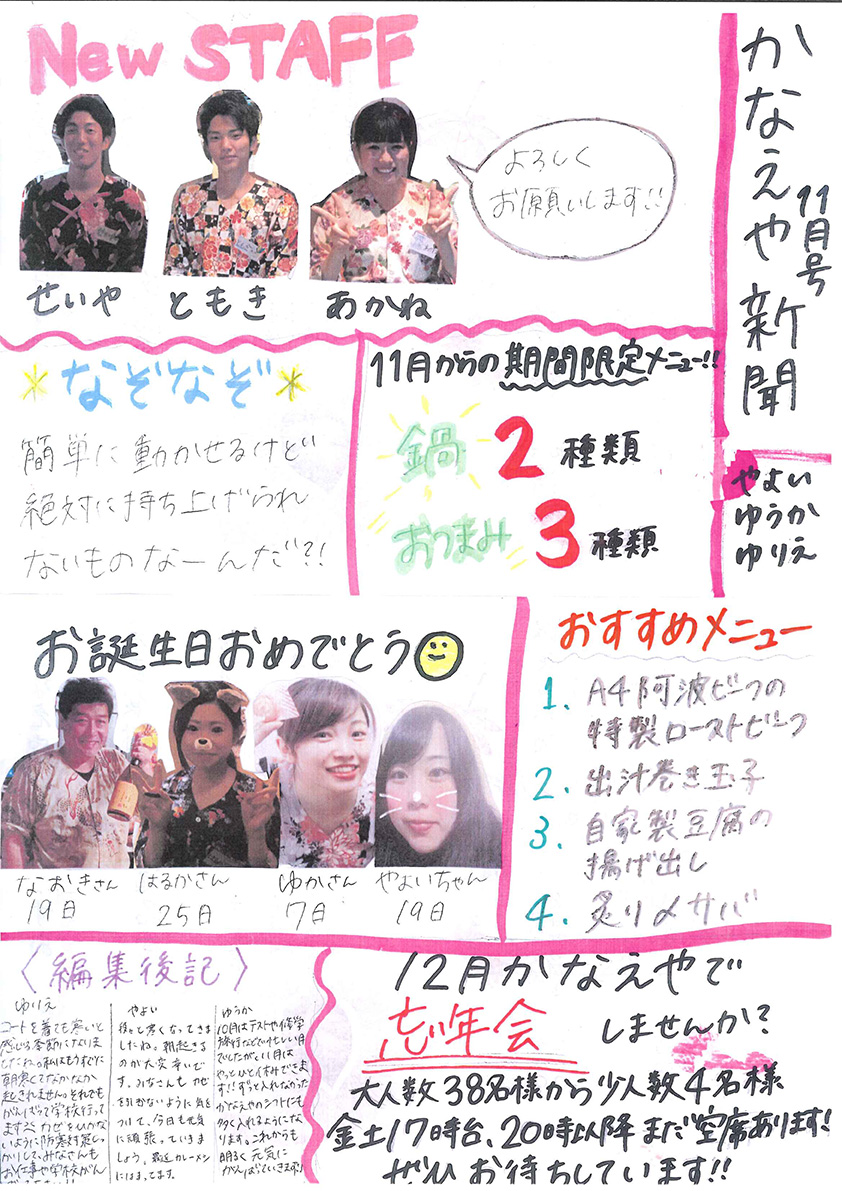 かなえや新聞
11月号
やよい
ゆうか
ゆりえ
New STAFF
せいや
ともき
あかね
よろしく
お願いします!!
*なぞなぞ*
簡単に動かせるけど
絶対に持ち上げられ
ないものなーんだ?!
11月からの期間限定メニュー!!
鍋2種類
おつまみ3種類
お誕生日おめでとう
なおきさん
19日
はるかさん
25日
ゆかさん
7日
やよいちゃん
19日
おすすめメニュー
1. A4阿波ビーフの
特製ローストビーフ
2. 出汁巻き玉子
3. 自家製豆腐の
揚げ出し
4. 炙り〆サバ
〈編集後記〉
ゆりえ
コートを着ても寒いと
感じる季節になりま
したね。私はもうすでに
朝寒くてなかなか
起きれません。それでも
がんばって学校行って
ます^^ カゼをひかな
いように防寒対策しっ
かりして、みなさんも
お仕事や学校がん
やよい
段々と寒くなってきま
したね。朝起きる
のが大変辛いで
す。みなさんもカゼ
を引かないように気を
ついて、今日も元気
に頑張っていきま
しょう。最近カレーメン
にはまってます。
ゆうか
10月はテストや修学
旅行などで忙しい月
でしたが、11月は
やっとひといきできま
す!!ずっと入れなかった
かなえやのシフトにも
多く入れるようにな
ります。これからも
明るく元気に
がんばっていきます!
12月かなえやで
忘年会しませんか?
大人数38名様から少人数4名様
金土17時台、20時以降まだ空席あります!
ぜひお待ちしています!!